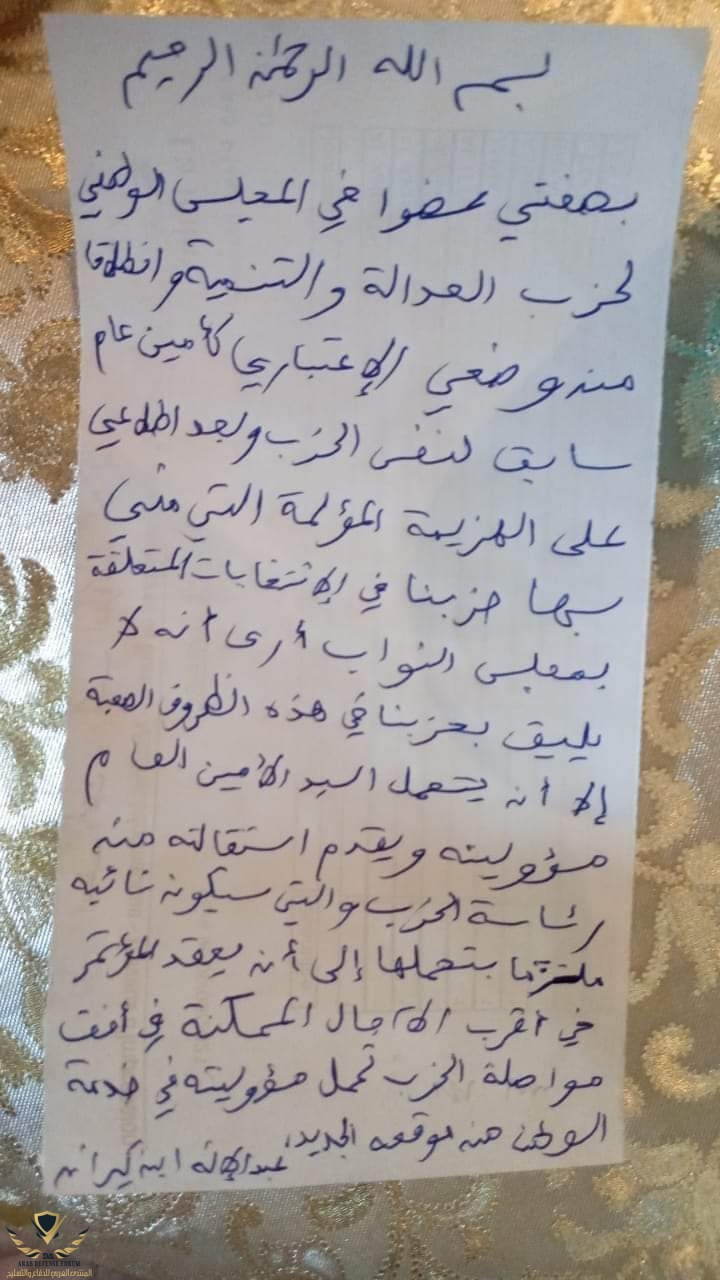 بسم الله الرحمٰن الرحيم
بصفتي عضوا في المجلس الوطني
لحزب العدالة والتنمية وانطلاقا
من وضعي الإعتباري كأمين عام
سابق لنفس الحزب وبعد اطلاعي
على الهزيمة المؤلمة التي مني
بها حزبنا في الإنتخابات المتعلقة
بمجلس النواب أرى أنه لا
يليق بحزبنا في هذه الظروف الصعبة
إلا أن يتحمل السيد الأمين العام
مسؤوليته ويقدم استقالته من
رئاسة الحزب والتي سيكون نائبه
ملتزما بتحملها إلى أن يعقد المؤتمر
في أقرب الآجال الممكنة في أفق
مواصلة الحزب تحمل مسؤوليته في خدمة
الوطن من موقعه الجديد، عبد الإله ابن كيران
ARAB DEFENSE FORUM
المنتدى العربي للدفاع والتسليح